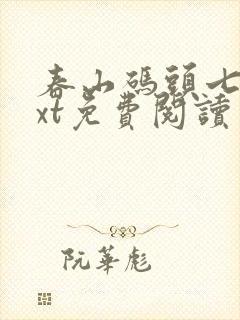 春山碼頭七
xt免費閱讀
阮華彪